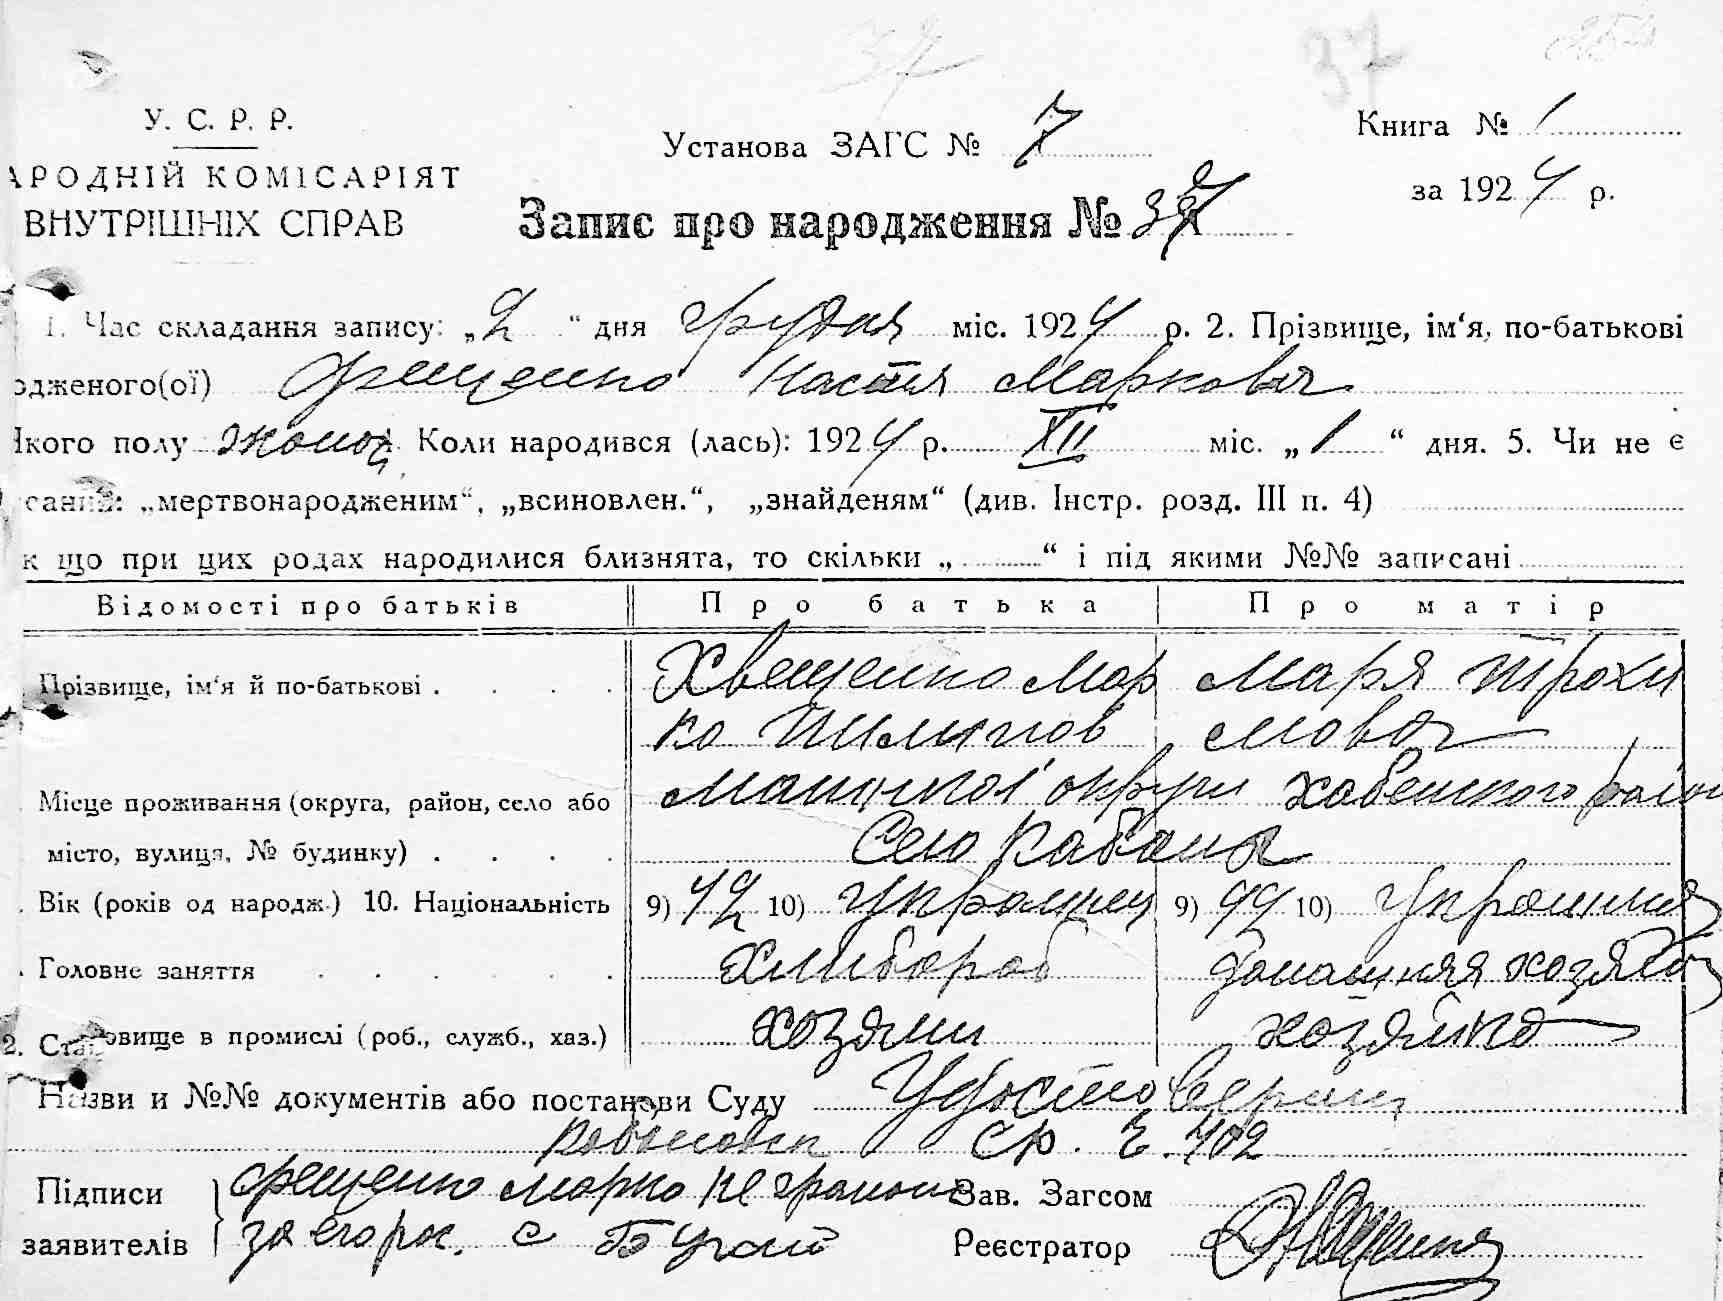 37 37
У. С. Р. Р.
АРОДНІЙ КОМІСАРІЯТ
ВНУТРІШНІХ СПРАВ
Установа ЗАГС № 7
Книга № 1
за 1924 р.
Запис про народження № 37
1. Час складання запису: „2“ дня грудня міс. 1924 р. 2. Прізвище, ім‘я, по-батькові
одженого(ої) Фещенко Настя Маркова
Якого полу жоноч. Коли народився (лась): 1924 р. XII міс. „1“ дня. 5. Чи не є
саний: „мертвонародженим“, „всиновлен.“, „знайденям“ (див. Інстр. розд. III п. 4)
к що при цих родах народилися близнята, то скільки „ “ і під якими №№ записані
Відомості про батьків Про батька Про матір
Прізвище, ім‘я й по-батькові . . . . Хвещенко Мар Маря Трохи
ко Пилипов мова
Місце проживання (округа, район, село або Малинкої округи Хабенского район
місто, вулиця, № будинку) . . . . Село Кабана
. Вік (років од народж.) 10. Національність 9) 42 10) Украинец 9) 44 10) Украинка
. Головне заняття . . . . . . Хлибороб домашняя хозяйка
2. Становище в промислі (роб., служб., хаз.) хозяин хозяйка
Назви и №№ документів або постанови Суду Удостоверен
ср. Е. 402
Підписи Фещенко Марко не грамот Зав. Загсом
заявителів за его рос. С Бугай Реєстратор